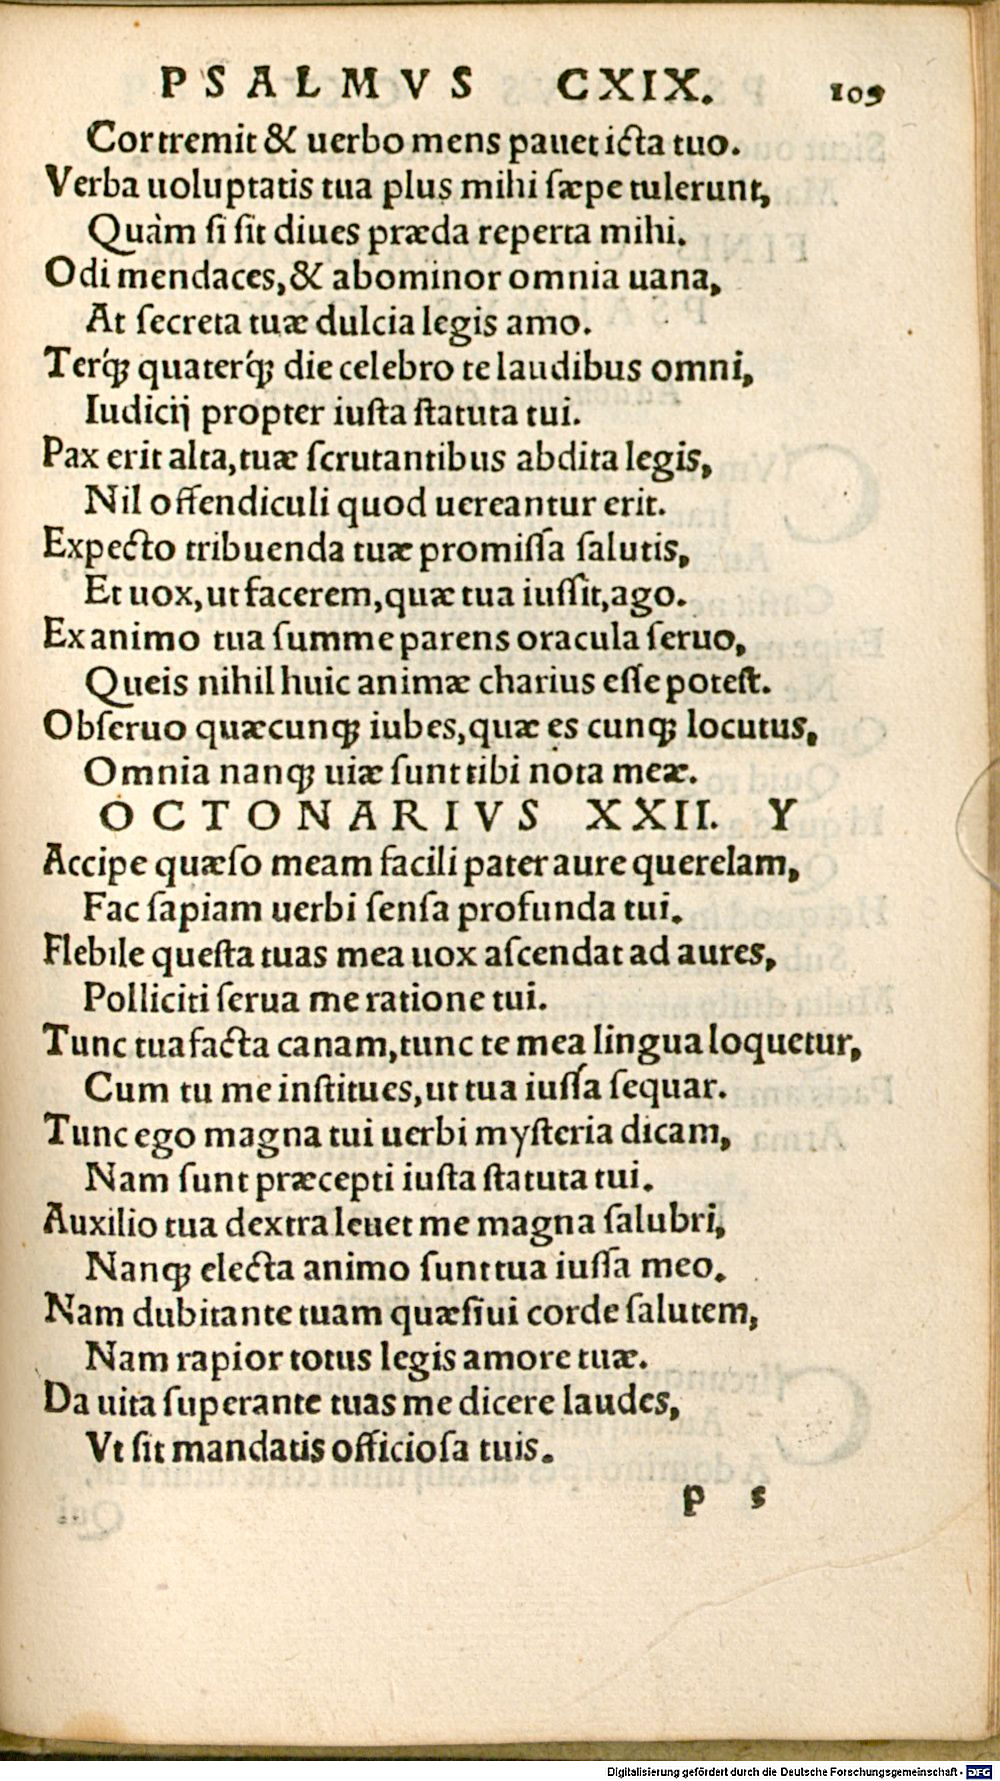 PSALMVS CXIX. 109
Cor tremit & uerbo mens pauet icta tuo.
Verba uoluptatis tua plus mihi sæpe tulerunt,
Quàm ſi ſit diues præda reperta mihi.
Odi mendaces, & abominor omnia uana,
At ſecreta tuæ dulcia legis amo.
Terq́; quaterq́; die celebro te laudibus omni,
Iudicij propter iuſta ſtatuta tui.
Pax erit alta, tuæ ſcrutantibus abdita legis,
Nil offendiculi quod uereantur erit.
Expecto tribuenda tuæ promiſſa ſalutis,
Et uox, ut facerem, quæ tua iuſſit, ago.
Ex animo tua ſumme parens oracula ſeruo,
Queis nihil huic animæ charius eſſe poteſt.
Obſeruo quæcunq; iubes, quæ es cunq; locutus,
Omnia nanq; uiæ ſunt tibi nota meæ.
OCTONARIVS XXII. Y
Accipe quæſo meam facili pater aure querelam,
Fac ſapiam uerbi ſenſa profunda tui.
Flebile queſta tuas mea uox aſcendat ad aures,
Polliciti ſerua me ratione tui.
Tunc tua facta canam, tunc te mea lingua loquetur,
Cum tu me inſtitues, ut tua iuſſa ſequar.
Tunc ego magna tui uerbi myſteria dicam,
Nam ſunt præcepti iuſta ſtatuta tui.
Auxilio tua dextra leuet me magna ſalubri,
Nanq; electa animo ſunt tua iuſſa meo.
Nam dubitante tuam quæſiui corde ſalutem,
Nam rapior totus legis amore tuæ.
Da uita ſuperante tuas me dicere laudes,
Vt ſit mandatis officioſa tuis.
p 5
Digitalisierung gefördert durch die Deutsche Forschungsgemeinschaft - DFG